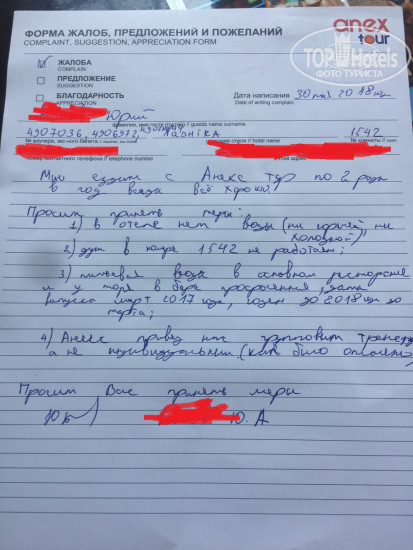 ФОРМА ЖАЛОБ, ПРЕДЛОЖЕНИЙ И ПОЖЕЛАНИЙ
COMPLAINT, SUGGESTION, APPRECIATION FORM
anex
tour
TOP HOTELS
ФОТО ТУРИСТА
ЖАЛОБА
COMPLAIN
ПРЕДЛОЖЕНИЕ
SUGGESTION
БЛАГОДАРНОСТЬ
APPRECIATION
Дата написания 30 мая 2018 год
Date of writing complain
Юрий
фамилия, имя гостя (гостей) / guests name surname
4907036, 4906972, Лаоника 1542
№ ваучера, экз-ного билета / voucher
название отеля / hotel name
№ комнаты
номер контактного телефона / telephone number
e-mail адрес
Мы ездим с Анекс Тур по 2 раза
в год всегда всё хорошо.
Просим принять меры:
1) в отеле нет воды (ни горячей, ни
холодной)
2) душ в номере 1542 не работает;
3) питьевая вода в основном ресторане
и у моря в баре просроченная, дата
выпуска март 2017 года, годен до 2018 год до
марта;
4) Анекс привёз нас групповым трансфер
а не индивидуальным (как было оплачено)
Просим Вас принять меры
Ю.А